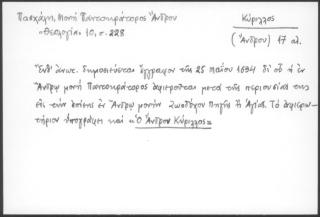 Πασχάλη, Μονή Παντοκράτορος Ἄνδρου
Κύριλλος
«Θεολογία» 10, σ. 228
(Ἄνδρου) 17 αἰ.
Ἔνθ' ἀνωτ. δημοσιεύεται ἔγγραφον τῆς 25 Μαΐου 1694 δι' οὗ ἡ ἐν
Ἄνδρῳ μονή Παντοκράτορος ἀφιεροῦται μετά τῆς περιουσίας της
εἰς τήν ἐπίσης ἐν Ἄνδρῳ μονήν Ζωοδόχου Πηγῆς ἤ Ἁγίας. Τό ἀφιερω-
τήριον ὑπογράφει καί «Ὁ Ἄνδρου Κύριλλος»